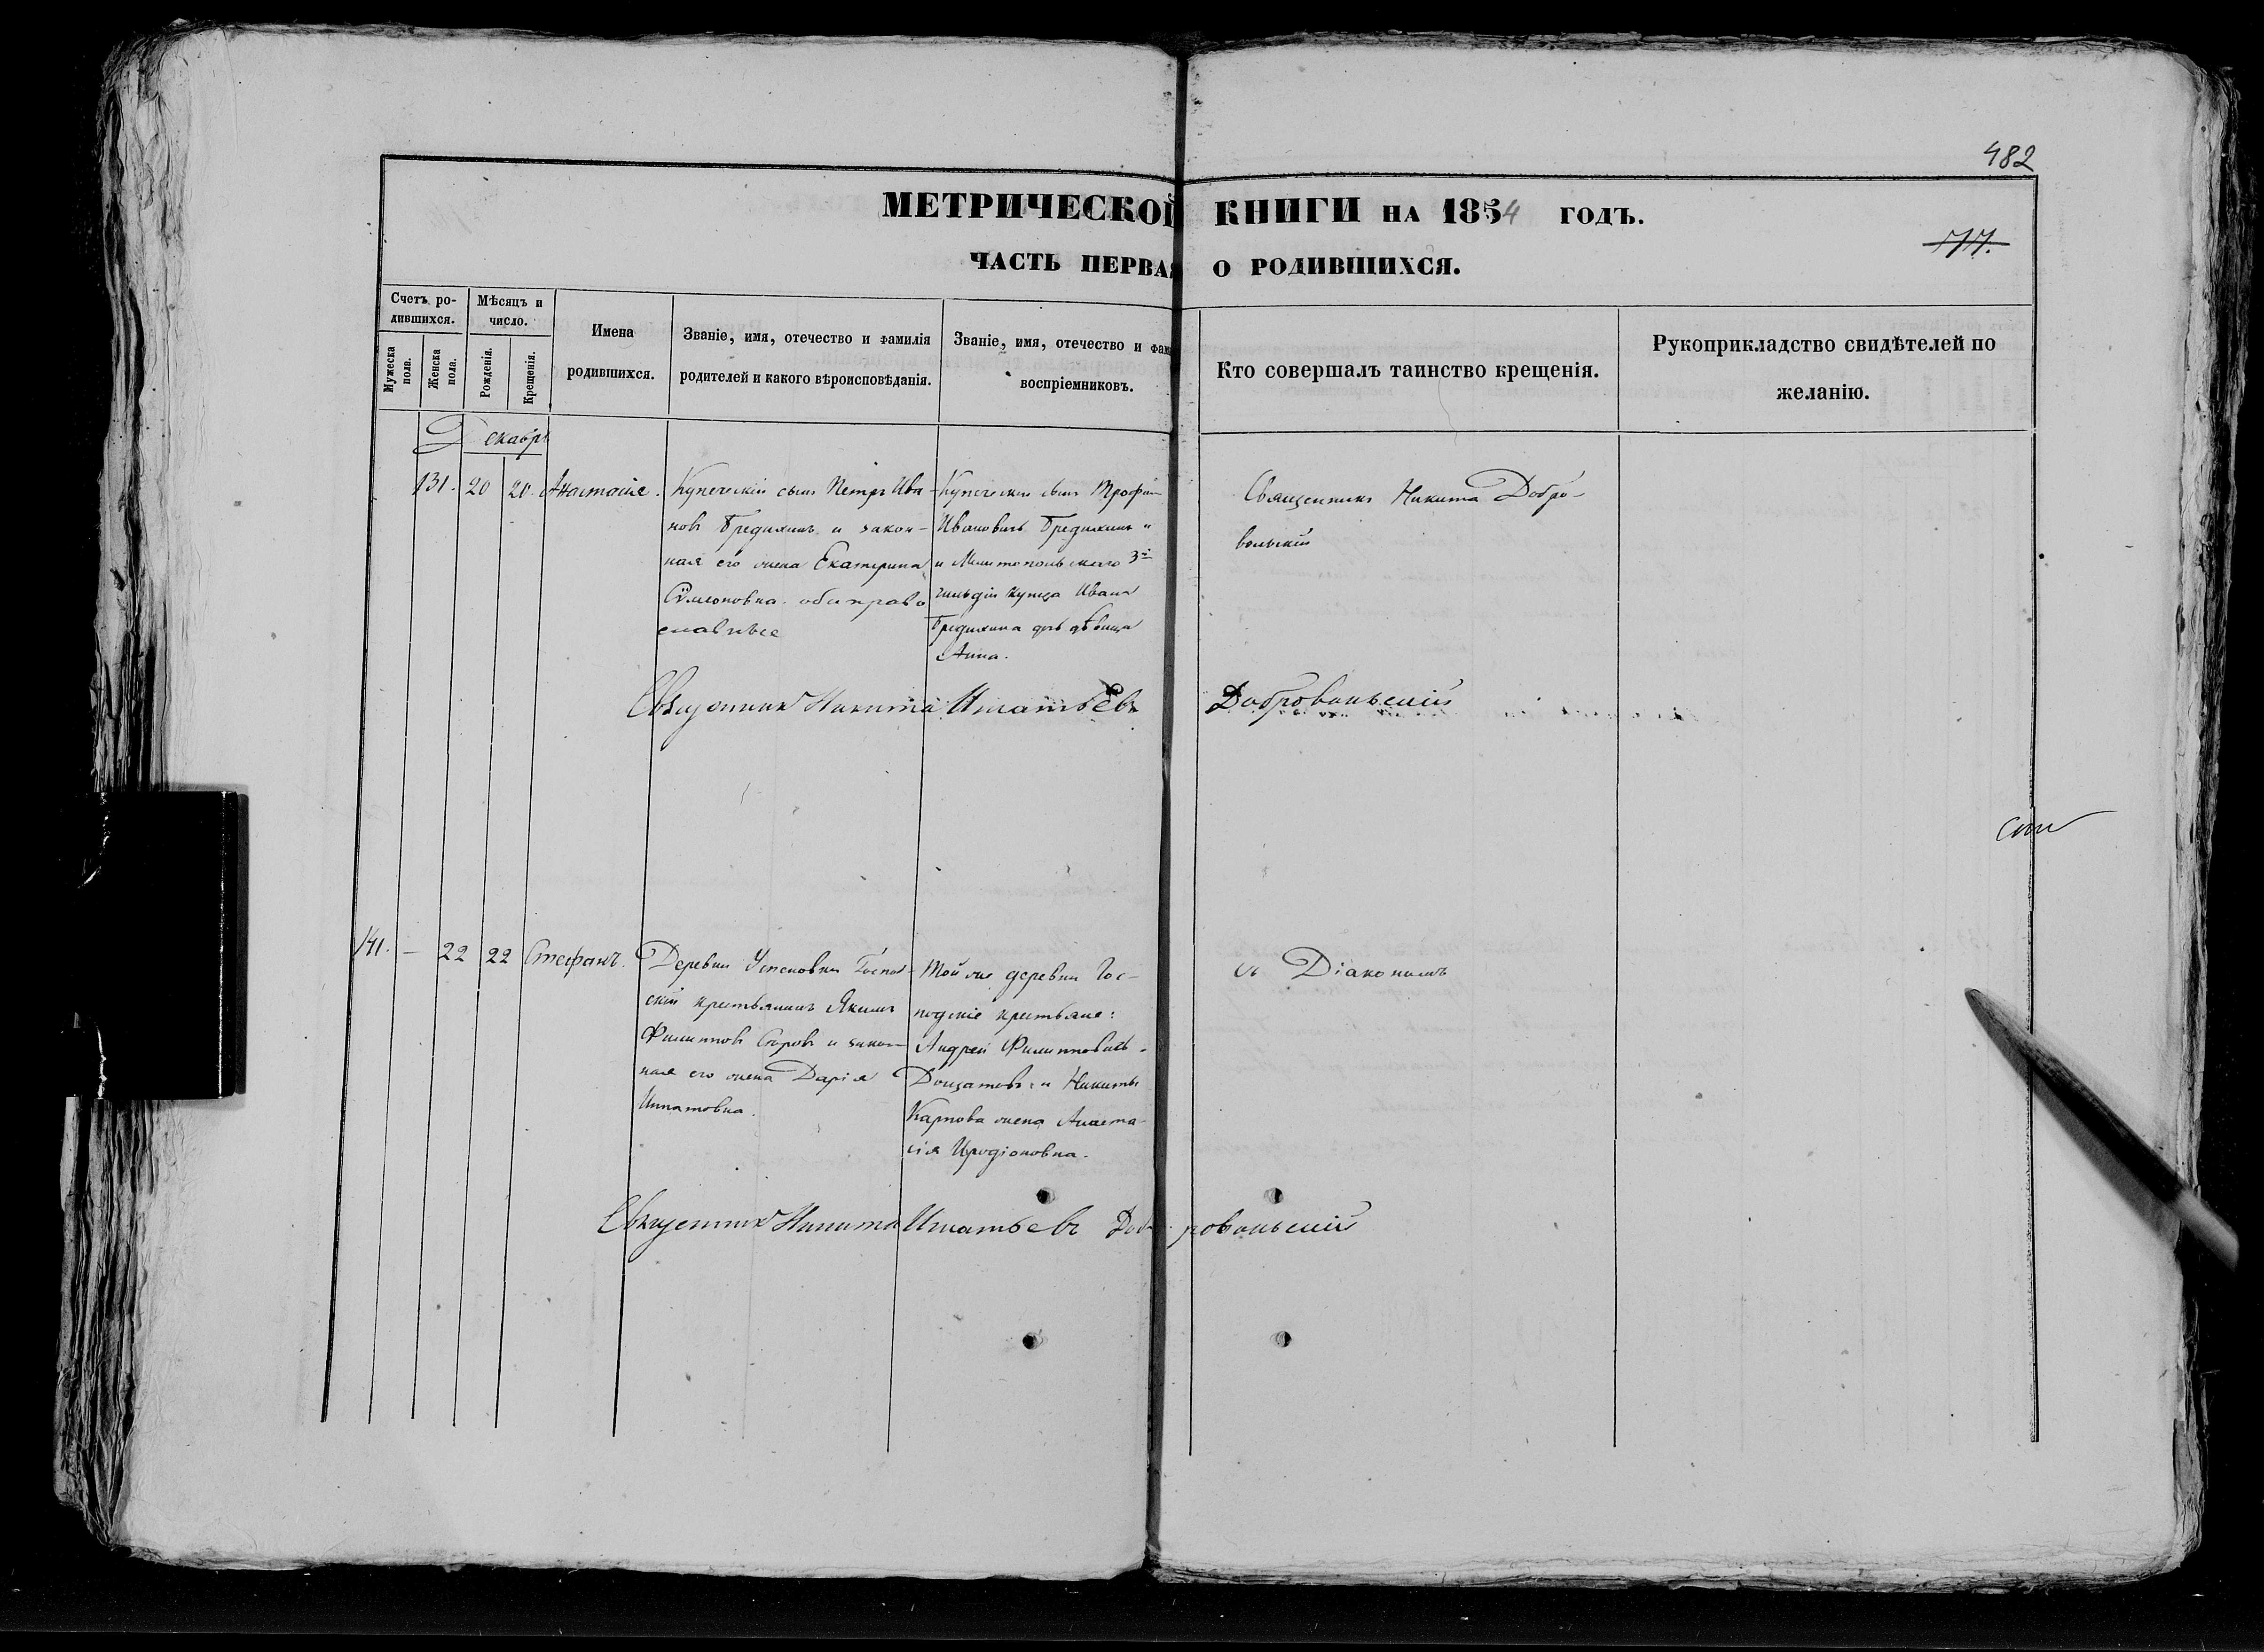 482
МЕТРИЧЕСКОЙ КНИГИ НА 1854 ГОДЪ.
ЧАСТЬ ПЕРВАЯ О РОДИВШИХСЯ.
Счетъ ро-
дившихся.
Мужеска
пола.
Женска
пола.
Мѣсяцъ и
число.
Рожденія.
Крещенія.
Имена
родившихся.
Званіе, имя, отечество и фамилія
родителей и какого вѣроисповѣданія.
Званіе, имя, отечество и фам
воспріемниковъ.
Кто совершалъ таинство крещенія.
Рукоприкладство свидѣтелей по
желанію.
Декабрь
131. 20 20. Анастасія.
Купеческій сынъ Петръ Ива-
новъ Бредихинъ и закон-
ная его жена Екатерина
Сѵмеоновна. оба право
славные
Купеческій сынъ Трофим
Ивановичъ Бредихинъ
и Мелитопольскаго 3й
гильдіи купца Ивана
Бредихина дочь дѣвица
Анна.
Священникъ Никита Добро-
вольскій
Священникъ Никита Игнатьевъ Добровольскій
141. — 22 22 Стефанъ.
Деревни Успеновки Господ-
скій крестьянинъ Якимъ
Филиповъ и закон
ная его жена Дарія
Игнатовна.
Той же деревни Гос-
подскіе крестьяне:
Андрей Филиповичъ
и Никиты
Карпова жена Анаста-
сія Иродіоновна.
съ Діакономъ
Священникъ Никита Игнатьевъ Добровольскій